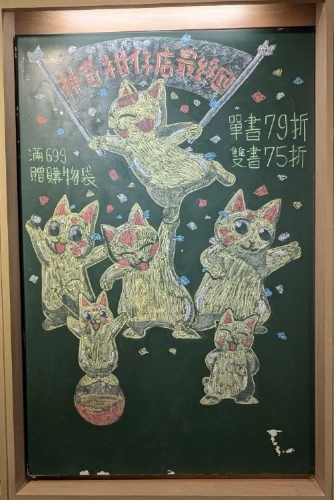 神奇柑仔店最終回
單書79折
雙書75折
滿699
贈購物袋